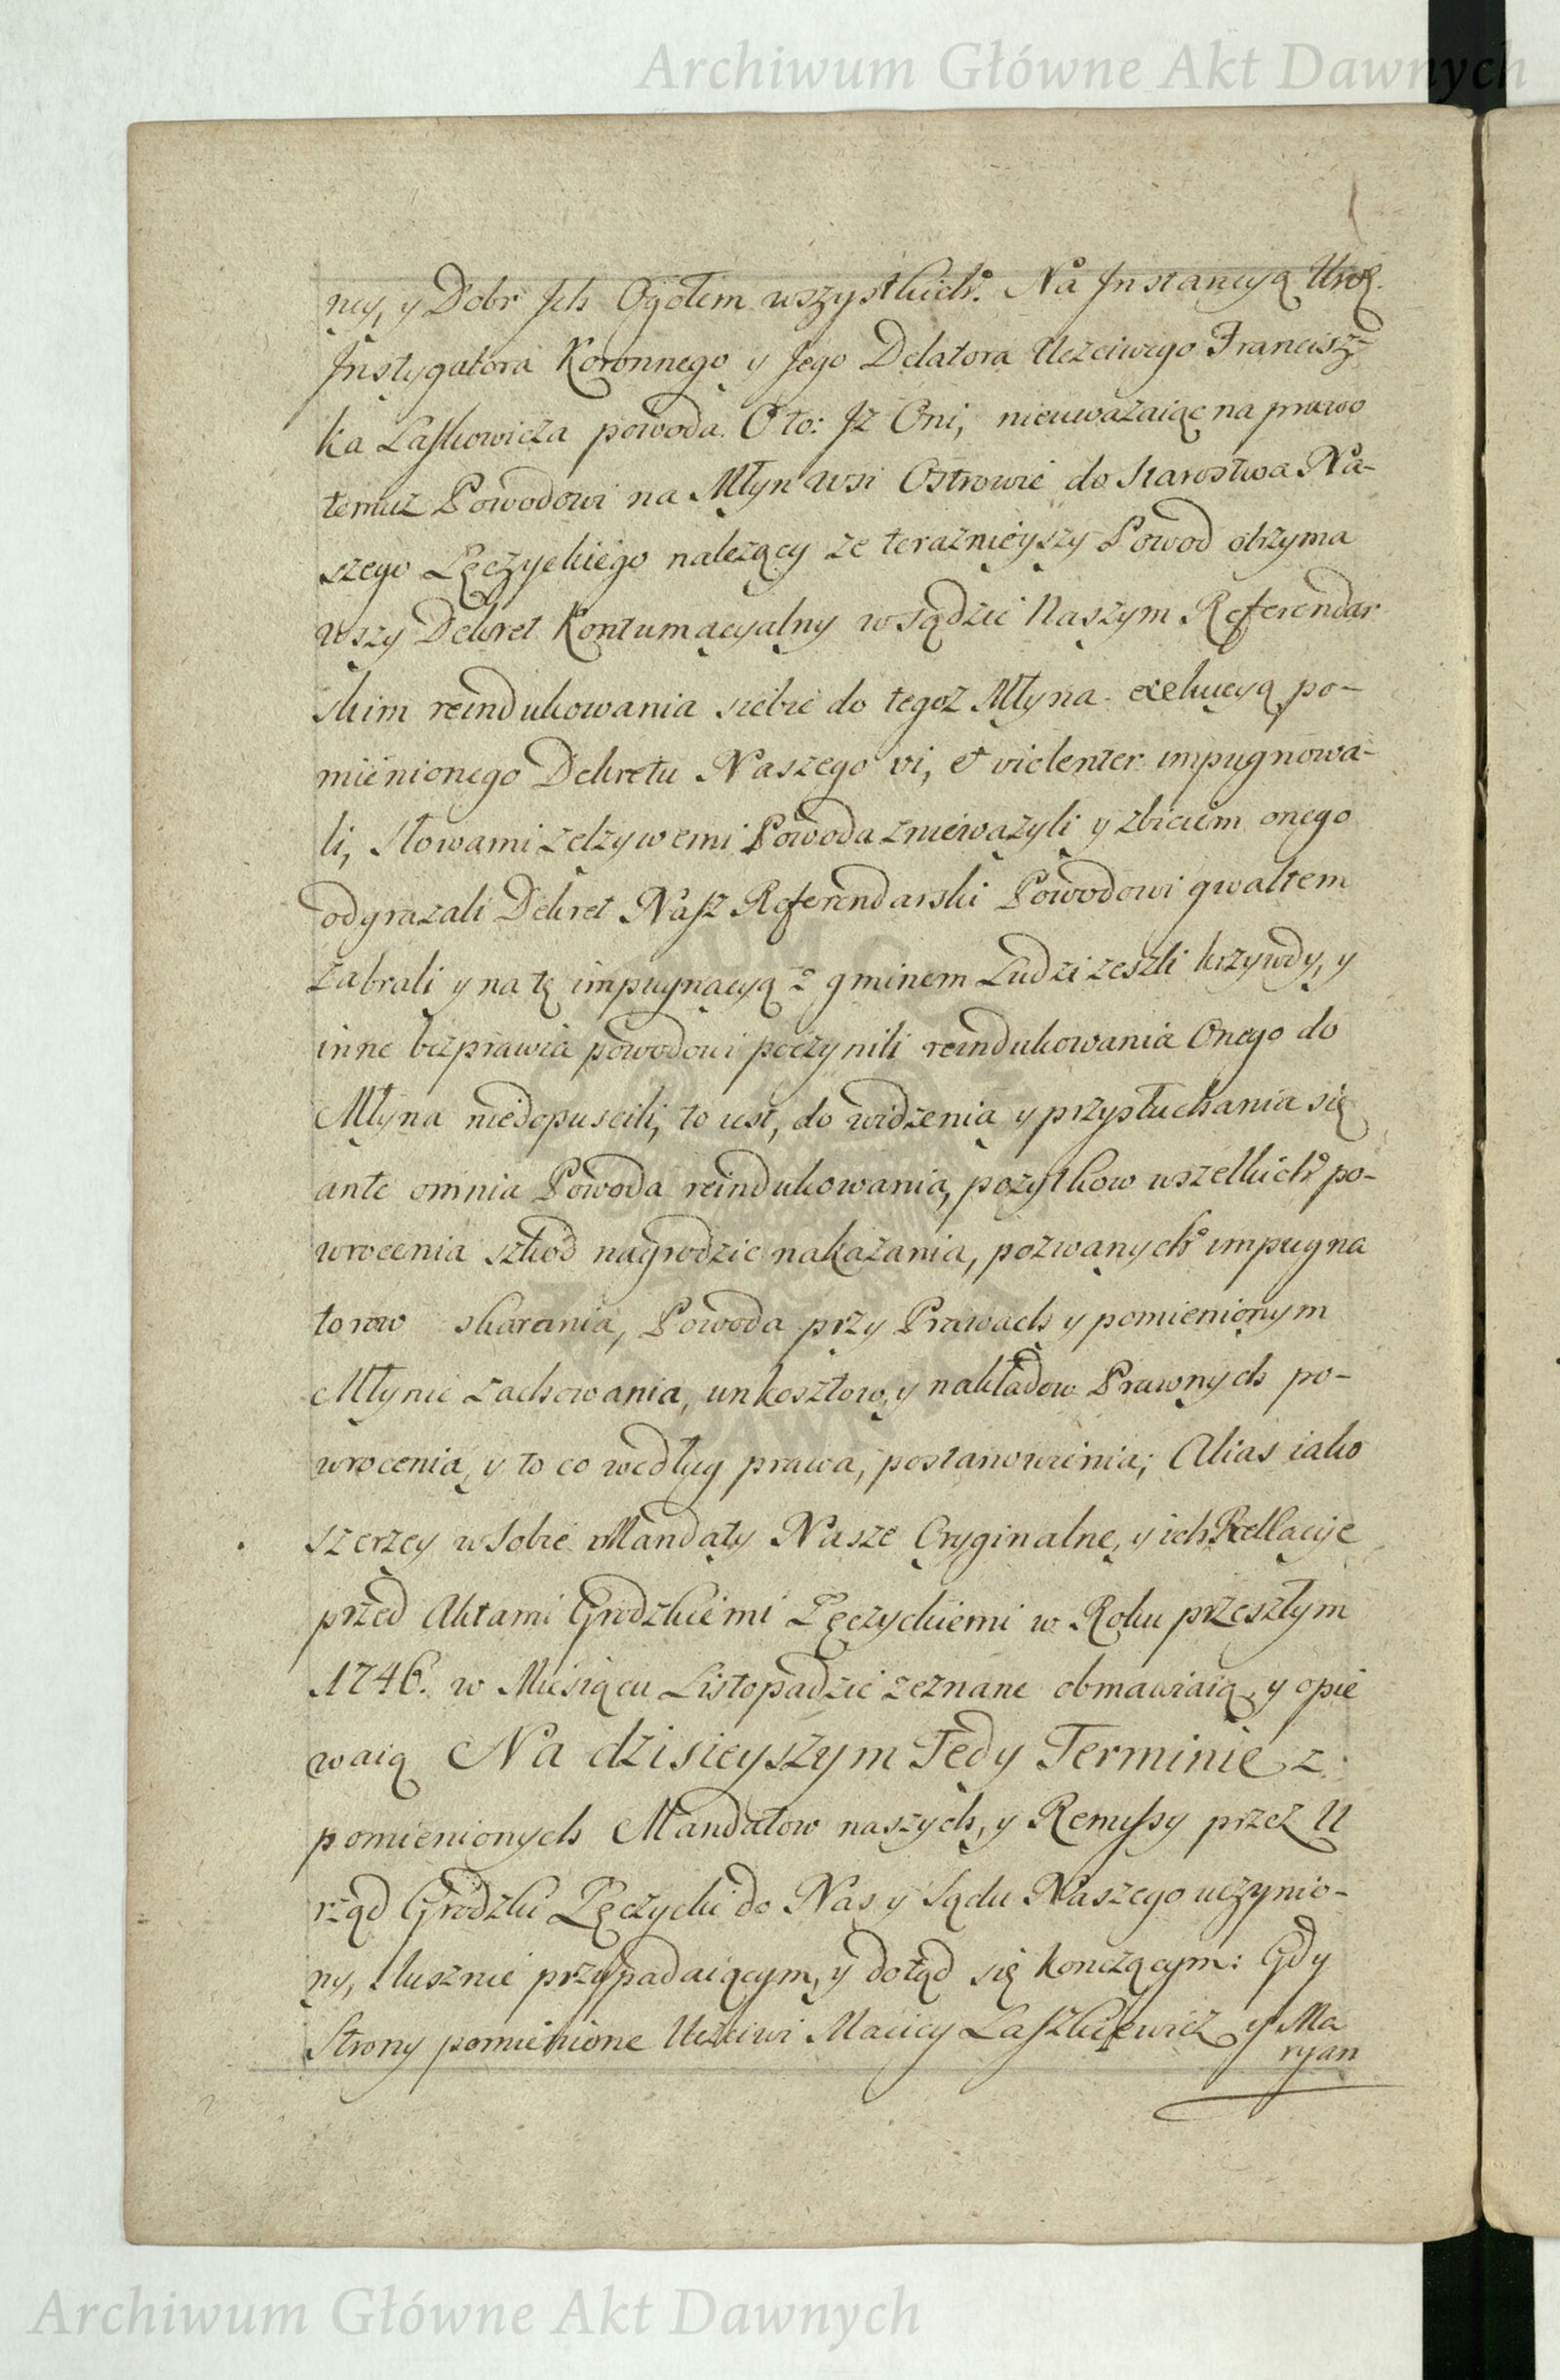 Archiwum Główne Akt Dawnych
ney, y Dobr Jch Ogołem wszystkich. Na Jnstancyą Urol.
Jnstygatora Koronnego y Jego Delatora Uczciwego Francisz-
ka Laskowicza powoda. O to: Jz Oni, nieuważaiąc na prawo
temuz Powodowi na Młyn wsi Ostrowie do Starostwa Na-
szego Łęczyckiego należący ze teraznieyszy Powod otrzyma
wszy Dekret Kontumacyalny w Sądzie Naszym Referendar
skim reindukowania siebie do tegoz Młyna exekucyą po-
mienionego Dekretu Naszego vi, et violenter impugnowa-
li, Słowami zelzywemi Powoda znieważyli y zbiciem onego
odgrazali Dekret Nasz Referendarski Powodowi gwałtem
zabrali y na tę impugnacyą z gminem Ludzi zeszli krzywdy, y
inne bezprawia powodowi poczynili reindukowania Onego do
Młyna niedopuscili, to iest, do widzenia y przysłuchania się
ante omnia Powoda reindukowania, pozytkow wszelkich po-
wrocenia szkod nagrodzic nakazania, pozwanych impugna
torow skarania, Powoda przy Prawach y pomienionym
Młynie zachowania, unkosztow, y nakładow Prawnych po-
wrocenia, y to co według prawa, postanowienia; Alias iako
szerzey w Sobie Mandaty Nasze Oryginalne, y ich Rellacyie
przed Aktami Grodzkiemi Łęczyckiemi w Roku przeszłym
1746. w Miesiącu Listopadzie zeznane obmawiaią, y opie
waią Na dzisieyszym Tedy Terminie z
pomienionych Mandatow naszych, y Remyssy przez U
rząd Grodzki Łęczycki do Nas y Sądu Naszego uczynio-
ny, słusznie przypadaiącym, y dotąd się konczącym: Gdy
Strony pomienione Uczciwi Maciey Laszkiewicz y Ma
ryan
Archiwum Główne Akt Dawnych